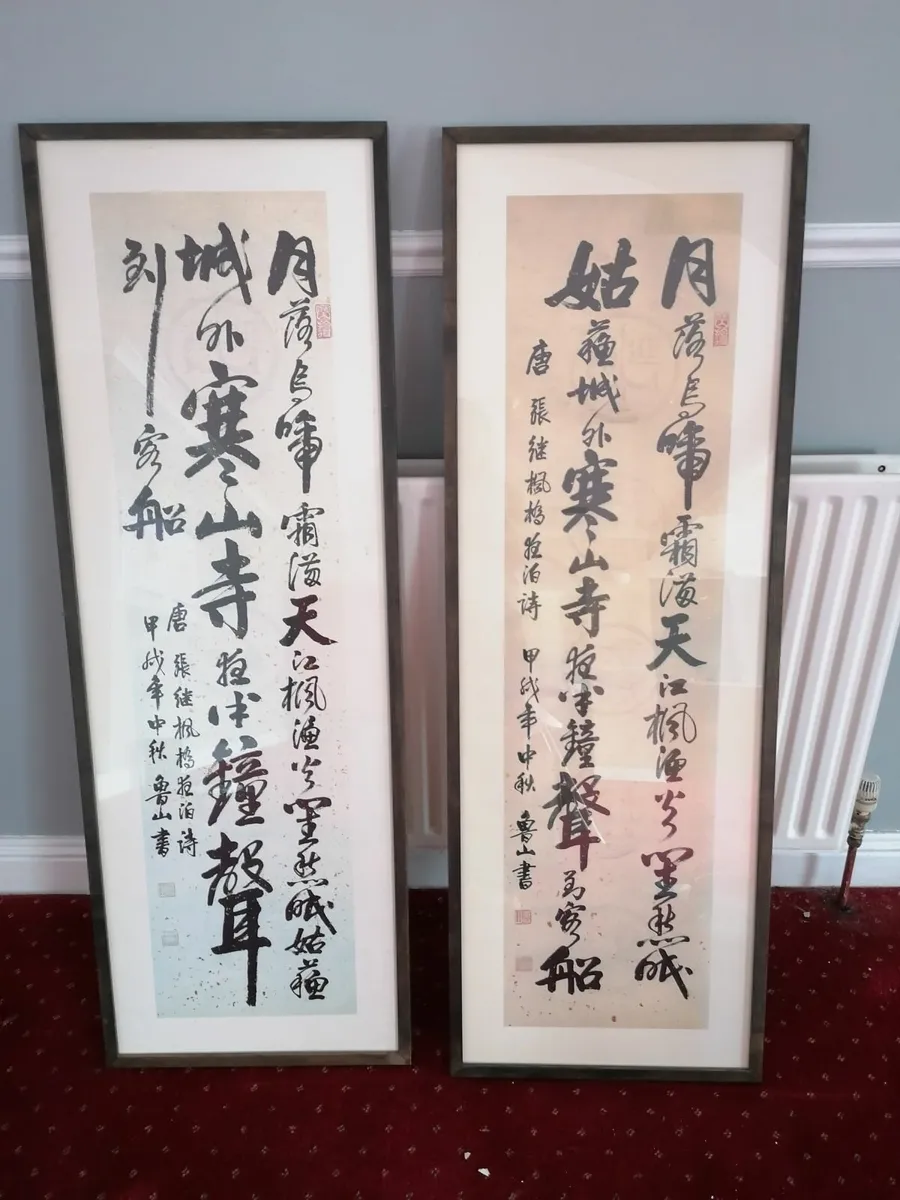 月落烏啼霜滿天江楓漁火對愁眠姑蘇
城外寒山寺夜半鐘聲
到客船
唐 張继楓橋夜泊詩
甲戌年中秋 魯山書
月落烏啼霜滿天江楓漁火對愁眠
姑蘇城外寒山寺夜半鐘聲到客船
唐 張继楓橋夜泊詩 甲戌年中秋 魯山書